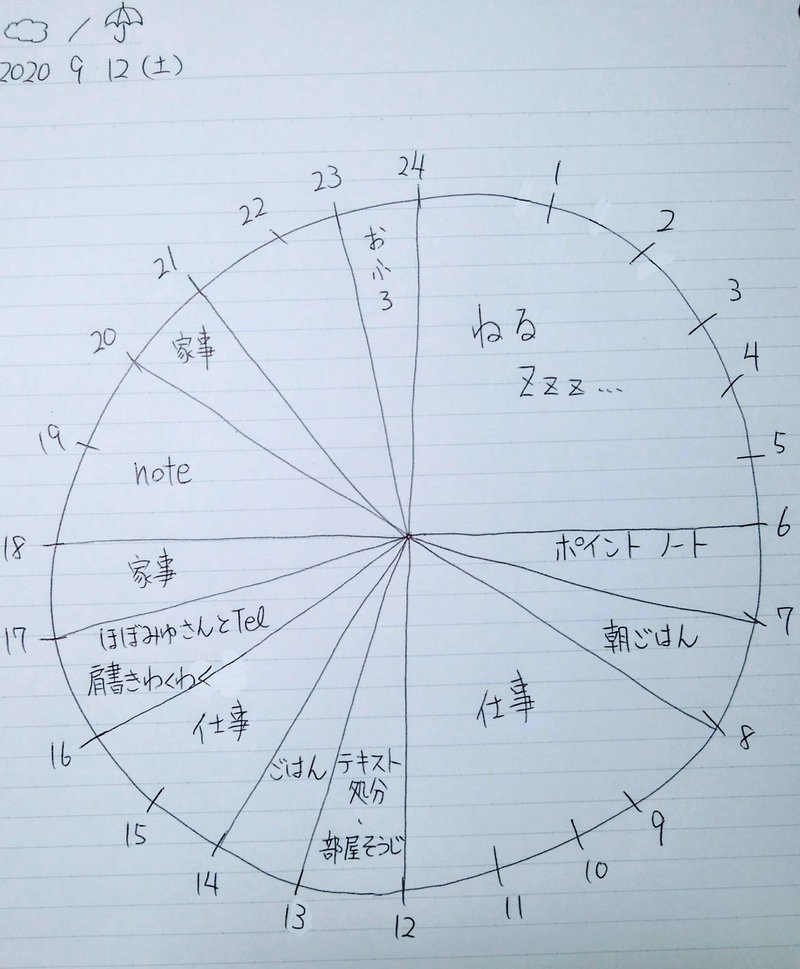 2020 9 12(土)
24
1
2
3
4
5
6
7
8
9
10
11
12
13
14
15
16
17
18
19
20
21
22
23
ねる
Zzz...
ポイント ノート
朝ごはん
仕事
テキスト
処分
、
部屋そうじ
ごはん
仕事
ほぼみゆさんとTel
肩書きわくわく
家事
note
家事
おふろ